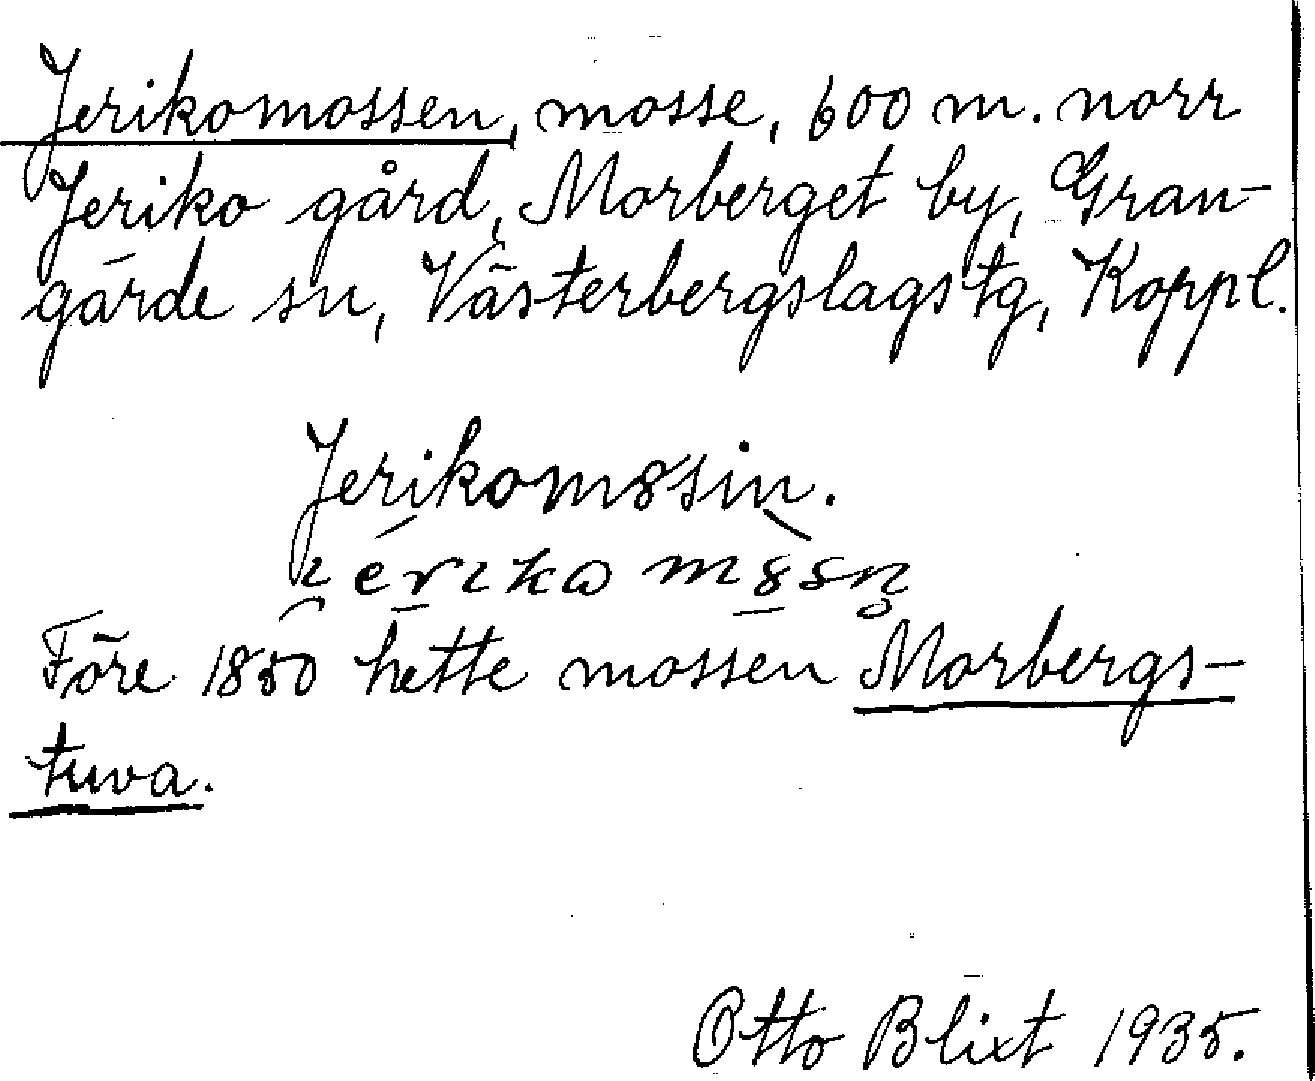 Jerikomossen, mosse, 600 m. norr
Jeriko gård, Morberget by, Gran-
gärde sn, Västerbergslags tg, Koppl.
Jerikom8sin.
Före 1850 hette mossen Morbergs-
tuva.
Otto Blixt 1935.